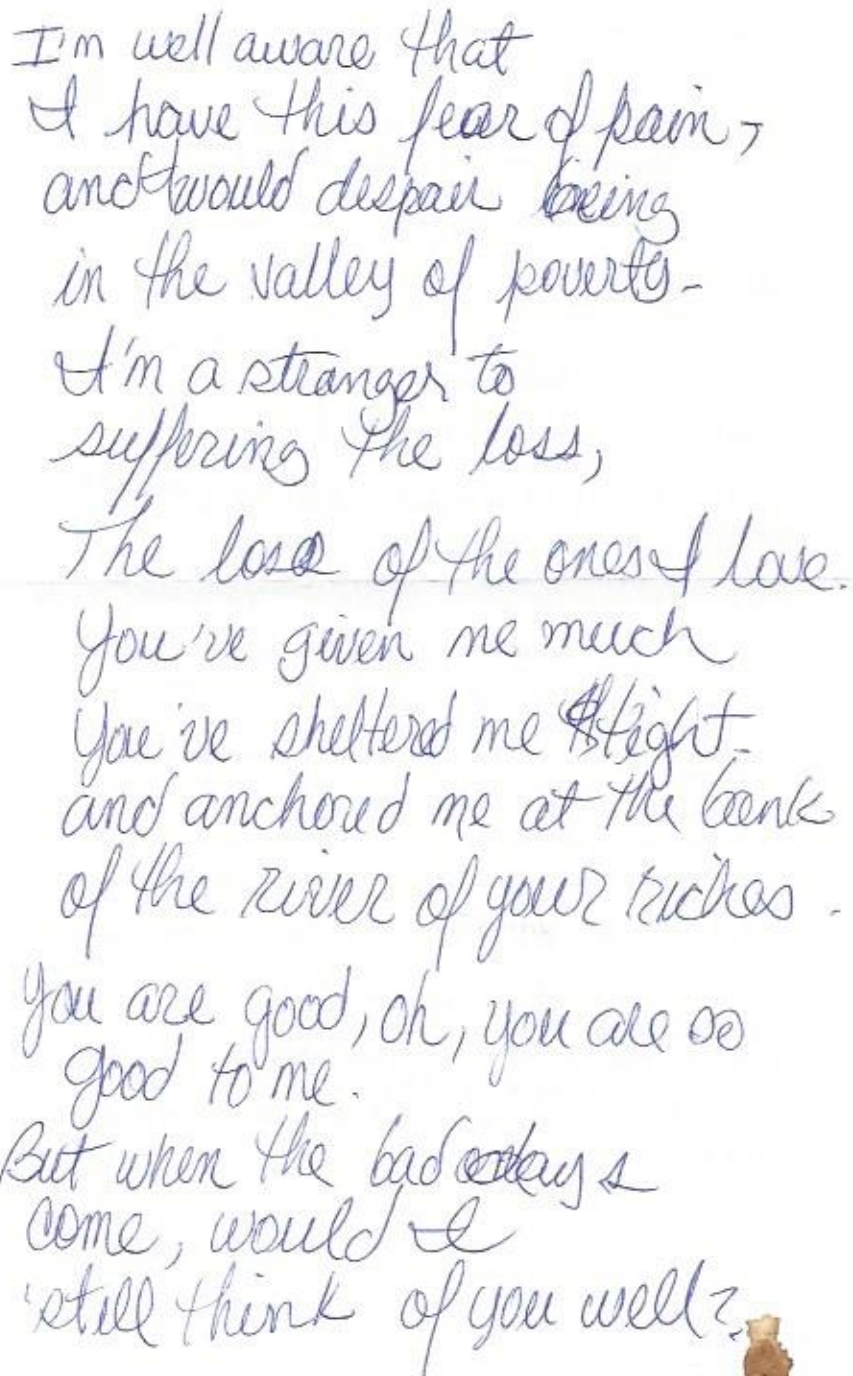 I'm well aware that
I have this fear of pain,
and I would despair being
in the valley of poverty-
I'm a stranger to
suffering the loss,
The loss of the ones I love.
You've given me much
You've sheltered me tight
and anchored me at the bank
of the river of your riches.
You are good, oh, you are so
good to me.
But when the bad days
come, would I
still think of you well?